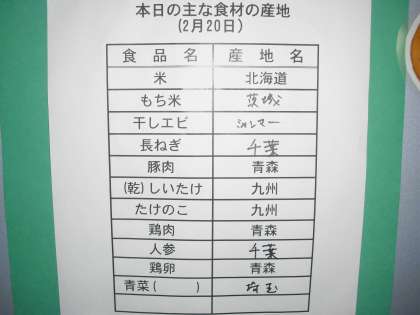 本日の主な食材の産地
(2月20日)
食品名 産地名
米 北海道
もち米 茨城
干しエビ ミャンマー
長ねぎ 千葉
豚肉 青森
(乾)しいたけ 九州
たけのこ 九州
鶏肉 青森
人参 千葉
鶏卵 青森
青菜( ) 埼玉